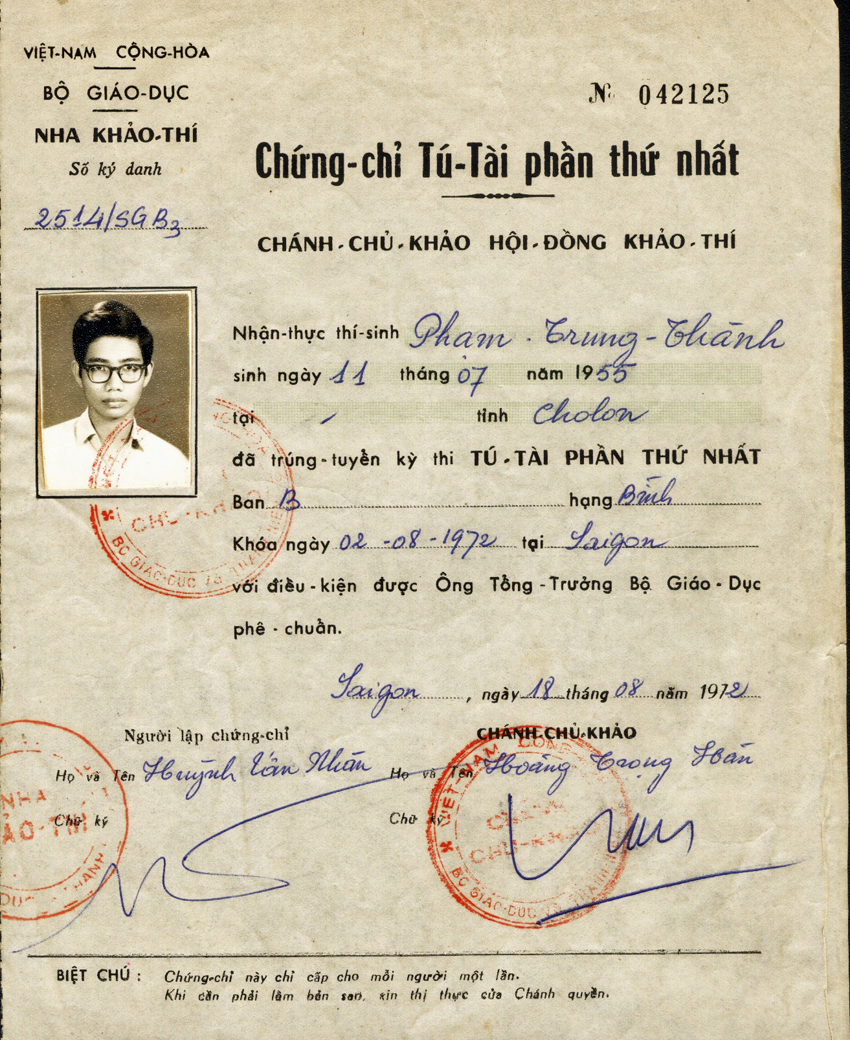 VIỆT-NAM CỘNG-HÒA
BỘ GIÁO-DỤC
NHA KHẢO-THÍ
Số ký danh
2514/SGB3
№ 042125
Chứng-chỉ Tú-Tài phần thứ nhất
CHÁNH-CHỦ-KHẢO HỘI-ĐỒNG KHẢO-THÍ
Nhận-thực thí-sinh Phạm-Trung-Thành
sinh ngày 11 tháng 07 năm 1955
tại - tỉnh Cholon
đã trúng-tuyển kỳ thi TÚ-TÀI PHẦN THỨ NHẤT
Ban B hạng Bình
Khóa ngày 02-08-1972 tại Saigon
với điều-kiện được Ông Tổng-Trưởng Bộ Giáo-Dục
phê-chuẩn.
Saigon, ngày 18 tháng 08 năm 1972
Người lập chứng-chỉ
Họ và Tên Huỳnh Văn Nhân
Chữ ký
CHÁNH-CHỦ-KHẢO
Họ và Tên Hoàng Trọng Hân
Chữ ký
CHỦ-KHẢO
BỘ GIÁO-DỤC VÀ THANH
NHA
KHẢO-THÍ
VIỆT-NAM CỘNG
CHÁNH
CHỦ-KHẢO
BỘ GIÁO-DỤC VÀ THANH
BIỆT CHÚ : Chứng-chỉ này chỉ cấp cho mỗi người một lần.
Khi cần phải làm bản sao, xin thị thực của Chánh quyền.